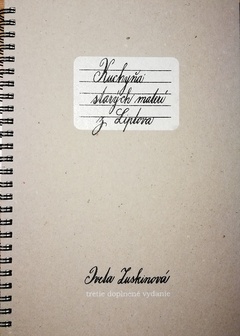 Kuchyňa
starých materí
z Liptova
Iveta Zuskinová
tretie doplnené vydanie